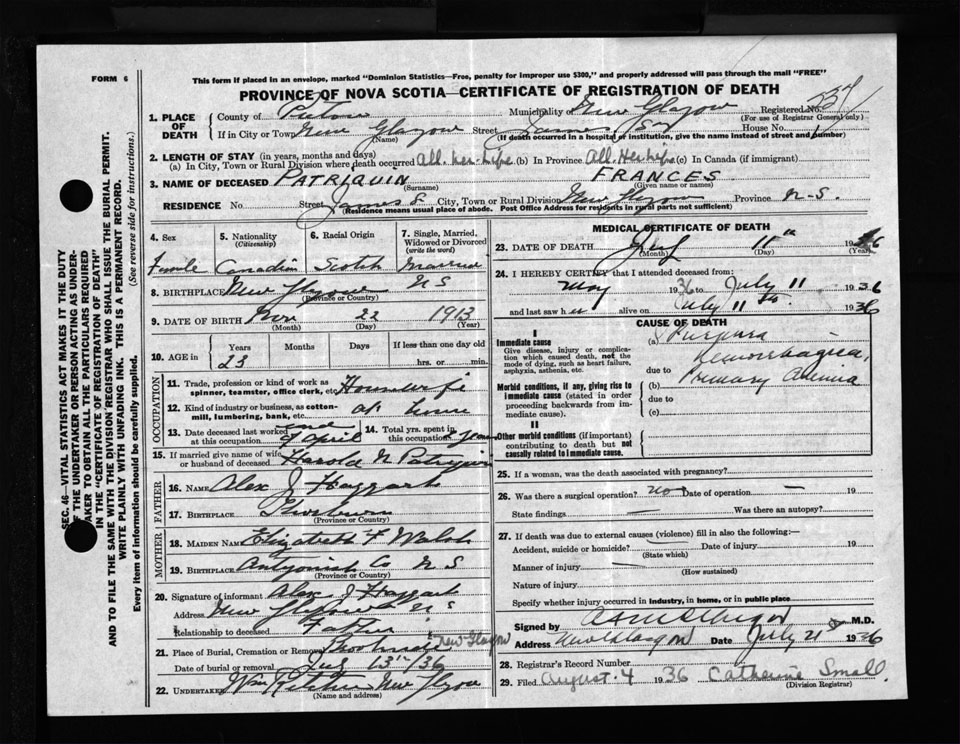 FORM 6
This form if placed in an envelope, marked "Dominion Statistics—Free, penalty for improper use $300," and properly addressed will pass through the mail "FREE"
PROVINCE OF NOVA SCOTIA—CERTIFICATE OF REGISTRATION OF DEATH
1. PLACE OF DEATH County of Pictou Municipality of New Glasgow Registered No.
(For use of Registrar General only)
If in City or Town New Glasgow Street James House No.
(Name) (If death occurred in a hospital or institution, give the name instead of street and number)
2. LENGTH OF STAY (in years, months and days)
(a) In City, Town or Rural Division where death occurred All her life (b) In Province All Her life (c) In Canada (if immigrant)
3. NAME OF DECEASED PATRIQUIN FRANCES
(Surname) (Given name or names)
RESIDENCE No Street James S City, Town or Rural Division New Glasgow Province N-S.
(Residence means usual place of abode. Post Office Address for residents in rural parts not sufficient)
4. Sex 5. Nationality (Citizenship) 6. Racial Origin 7. Single, Married, Widowed or Divorced (write the word)
Female Canadian Scotch Married
8. BIRTHPLACE New Glasgow NS
(Province or Country)
9. DATE OF BIRTH Nov 22 1913
(Month) (Day) (Year)
10. AGE in Years Months Days If less than one day old
23 hrs. or min.
OCCUPATION
11. Trade, profession or kind of work as spinner, teamster, office clerk, etc. Housewife
12. Kind of industry or business, as cotton-mill, lumbering, bank, etc. at home
13. Date deceased last worked at this occupation end of April 14. Total yrs. spent in this occupation
15. If married give name of wife or husband of deceased Harold N Patriquin
FATHER
16. NAME Alex J Haggart
17. BIRTHPLACE Thorburn
(Province or Country)
MOTHER
18. MAIDEN NAME Elizabeth F Walsh
19. BIRTHPLACE Antigonish Co N S
(Province or Country)
20. Signature of informant Alex J Haggart
Address New Glasgow NS
Relationship to deceased Father
21. Place of Burial, Cremation or Removal New Glasgow
Date of burial or removal July 13th/36
22. UNDERTAKER New Glasgow
(Name and address)
MEDICAL CERTIFICATE OF DEATH
23. DATE OF DEATH July 11th 1936
(Month) (Day) (Year)
24. I HEREBY CERTIFY that I attended deceased from:
May 1936 to July 11 1936
and last saw her alive on July 11th 1936
CAUSE OF DEATH
I
Immediate cause (a) Purpura Hemorrhagica,
Give disease, injury or complication which caused death, not the mode of dying, such as heart failure, asphyxia, asthenia, etc.
due to
Morbid conditions, if any, giving rise to immediate cause (stated in order proceeding backwards from immediate cause). (b) Primary Anemia
due to
(c)
II
Other morbid conditions (if important) contributing to death but not causally related to immediate cause.
25. If a woman, was the death associated with pregnancy?
26. Was there a surgical operation? no Date of operation — 19
State findings — Was there an autopsy?
27. If death was due to external causes (violence) fill in also the following:—
Accident, suicide or homicide? Date of injury 19
(State which)
Manner of injury —
(How sustained)
Nature of injury
Specify whether injury occurred in industry, in home, or in public place
Signed by M.D.
Address New Glasgow Date July 21st 1936
28. Registrar's Record Number
29. Filed August 4 1936 Catherine Small.
(Division Registrar)
SEC. 46—VITAL STATISTICS ACT MAKES IT THE DUTY
OF THE UNDERTAKER OR PERSON ACTING AS UNDERTAKER TO OBTAIN ALL THE PARTICULARS REQUIRED
IN THE "CERTIFICATE OF REGISTRATION OF DEATH"
AND TO FILE THE SAME WITH THE DIVISION REGISTRAR WHO SHALL ISSUE THE BURIAL PERMIT.
WRITE PLAINLY WITH UNFADING INK. THIS IS A PERMANENT RECORD.
Every item of information should be carefully supplied. (See reverse side for instructions.)